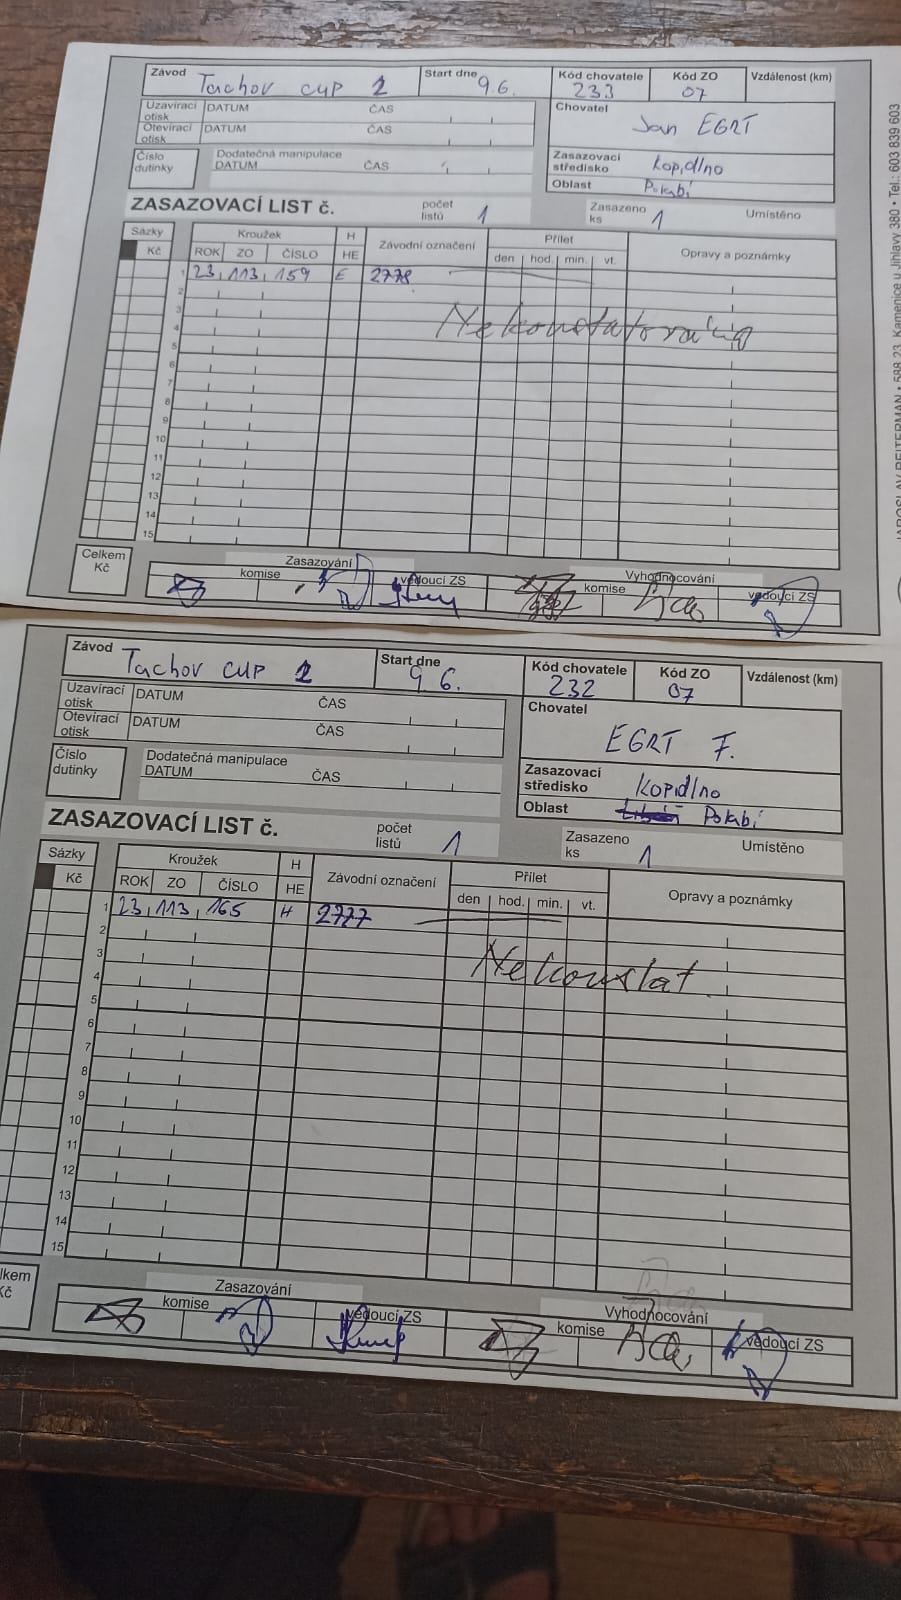 Závod Tachov cup 2 Start dne 9.6. Kód chovatele 233 Kód ZO 07 Vzdálenost (km)
Uzavírací otisk DATUM ČAS
Otevírací otisk DATUM ČAS
Chovatel Jan EGRT
Číslo dutinky
Dodatečná manipulace
DATUM ČAS
Zasazovací středisko Kopidlno
Oblast Polabí
ZASAZOVACÍ LIST č. počet listů 1 Zasazeno ks 1 Umístěno
Sázky Kroužek H Závodní označení Přílet Opravy a poznámky
Kč ROK ZO ČÍSLO HE den hod. min. vt.
1 23 113 159 E 2778
2
3
Nekonstatováno
4
5
6
7
8
9
10
11
12
13
14
15
Celkem Kč
Zasazování Vyhodnocování
komise vedoucí ZS komise vedoucí ZS
JAROSLAV REITERMAN • 588 23 Kamenice u Jihlavy 380 • Tel.: 603 839 603
Závod Tachov cup 2 Start dne 9.6. Kód chovatele 232 Kód ZO 07 Vzdálenost (km)
Uzavírací otisk DATUM ČAS
Otevírací otisk DATUM ČAS
Chovatel EGRT F.
Číslo dutinky
Dodatečná manipulace
DATUM ČAS
Zasazovací středisko Kopidlno
Oblast Polabí
ZASAZOVACÍ LIST č. počet listů 1 Zasazeno ks 1 Umístěno
Sázky Kroužek H Závodní označení Přílet Opravy a poznámky
Kč ROK ZO ČÍSLO HE den hod. min. vt.
1 23 113 165 H 2777
2
3
Nekonstat.
4
5
6
7
8
9
10
11
12
13
14
15
lkem
Kč
Zasazování Vyhodnocování
komise vedoucí ZS komise vedoucí ZS